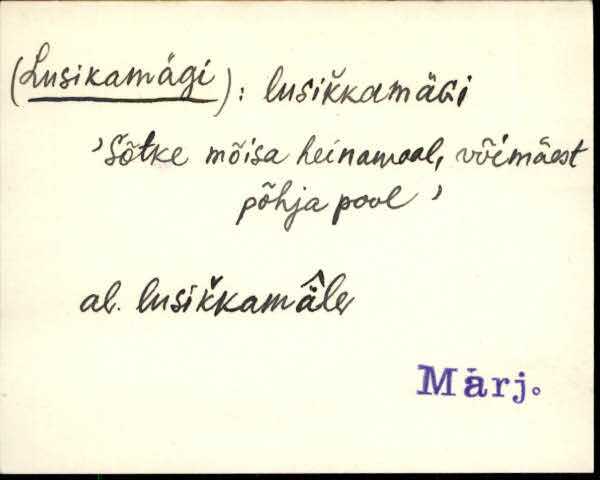 (Lusikamägi): lusiǩkamäGi
'Sõtke mõisa heinamaal, võimäest
põhja pool'
al. lusiǩkamä̂le
Märj.